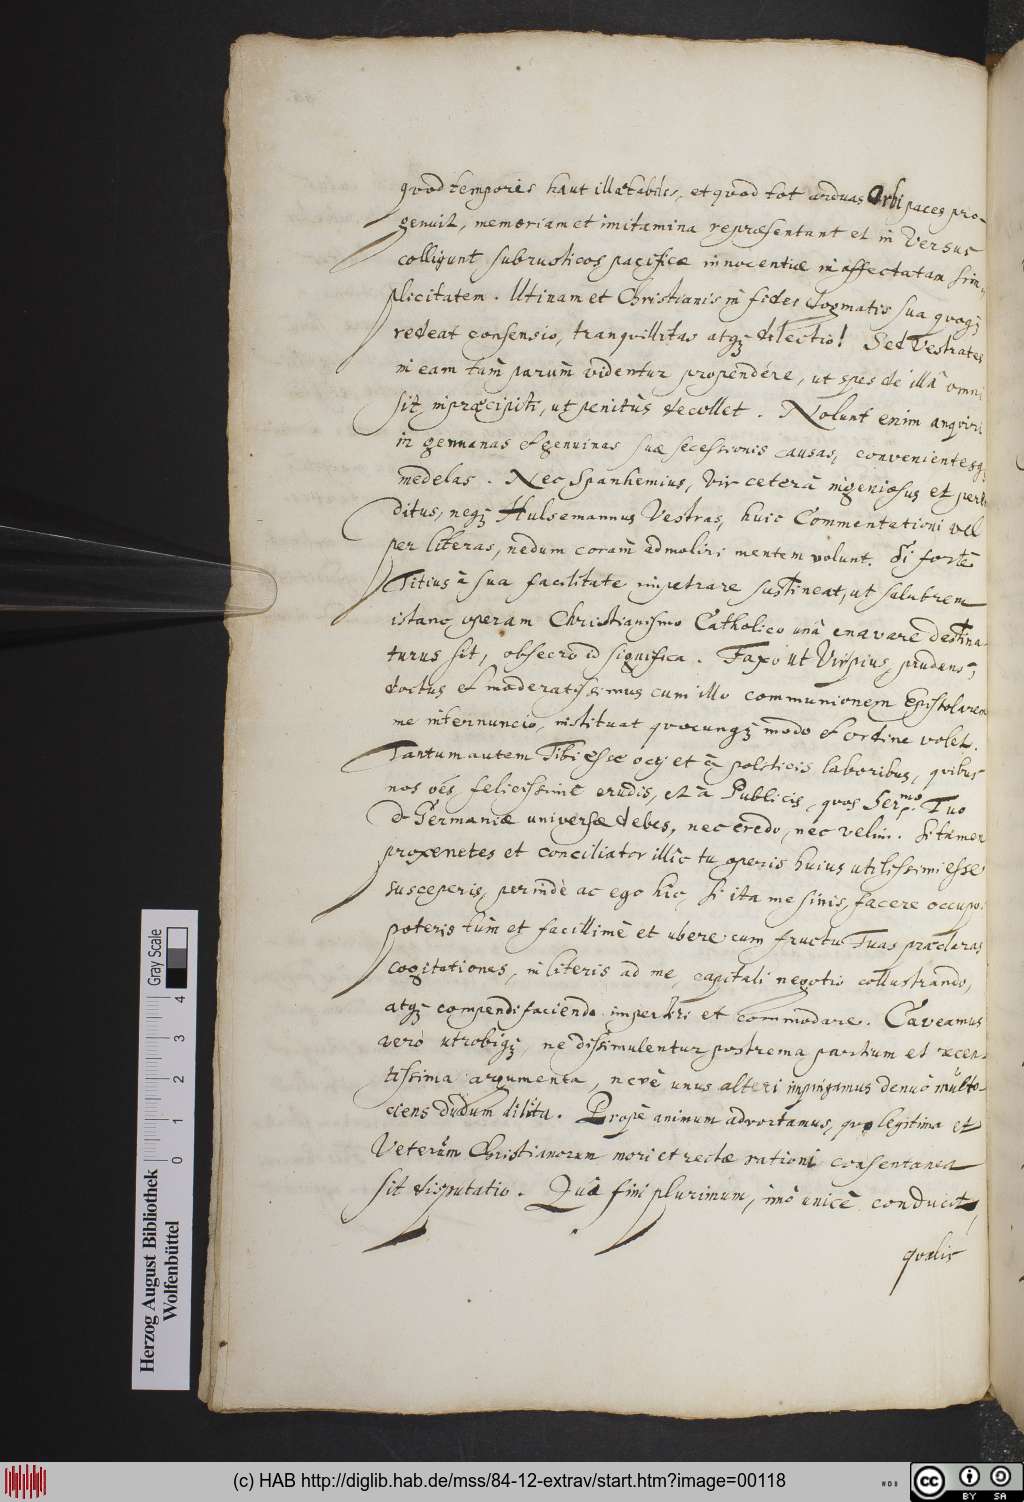 quod temporis haut illætabiles, et quod tot arduas Orbi paces pro-
genuit, memoriam et imitamina repræsentant et in Versus
colligunt subrusticos pacificæ innocentiæ inaffectatam sim-
plicitatem. Utinam et Christianis in fidei dogmatis sua quoqȝ
redeat consensio, tranquillitas atqȝ dilectio! Sed Vestrates
in eam tùm parùm videntur propendére, ut spes de illâ omnis
sit in præcipiti, ut penitùs decollet. Nolunt enim anquiri
in germanas et genuinas suæ secessionis causas, convenientesqȝ
medelas. Nec Spanhemius, Vir ceterà ingeniosus et peri-
ditus, neqȝ Hulsemannus Vestras, huic Commentationi vel
per literas, nedum coràm admoliri mentem volunt. Si fortè
Titius à sua facilitate impetrare sustineat, ut salubrem
istanc operam Christianissimo Catholico unà enavare destina-
turus sit, obsecro id significa. Faxo ut Vir pius, prudens,
doctus et moderatissimus cum illo communionem Epistolarem
me internuncio, instituat quocunqȝ modo et ordine volet.
Tantum autem Tibi esse ocij et à politicis laboribus, quibus
nos oēs felicissimè erudis, et à Publicis, quos Ser.mo Tuo
& Germaniæ universæ debes, nec credo, nec velim. Si tamen
proxenetes et conciliator illîc tu operis huius utilissimi esse
susceperis, perindè ac ego hîc, si ita me sinis, facere occupo.
poteris tùm et facillimè et ubere cum fructu Tuas præclaras
cogitationes, in literis ad me, capitali negotio collustrando,
atqȝ compendifaciendo impertiri et commodare. Caveamus
verò utrobiqȝ, ne dissimulentur postrema partium et recen-
tissima argumenta, nevè unus alteri impingamus denuò multo-
ciens dudum diluta. Propè animum advortamus, quæ legitima et
Veterùm Christianorum mori et rectæ rationi consentanea
sit disputatio. Quæ fini plurimùm, imò unicè conducit,
qualis
Herzog August Bibliothek
Wolfenbüttel
0 1 2 3 4
Gray Scale
(c) HAB http://diglib.hab.de/mss/84-12-extrav/start.htm?image=00118
cc BY SA